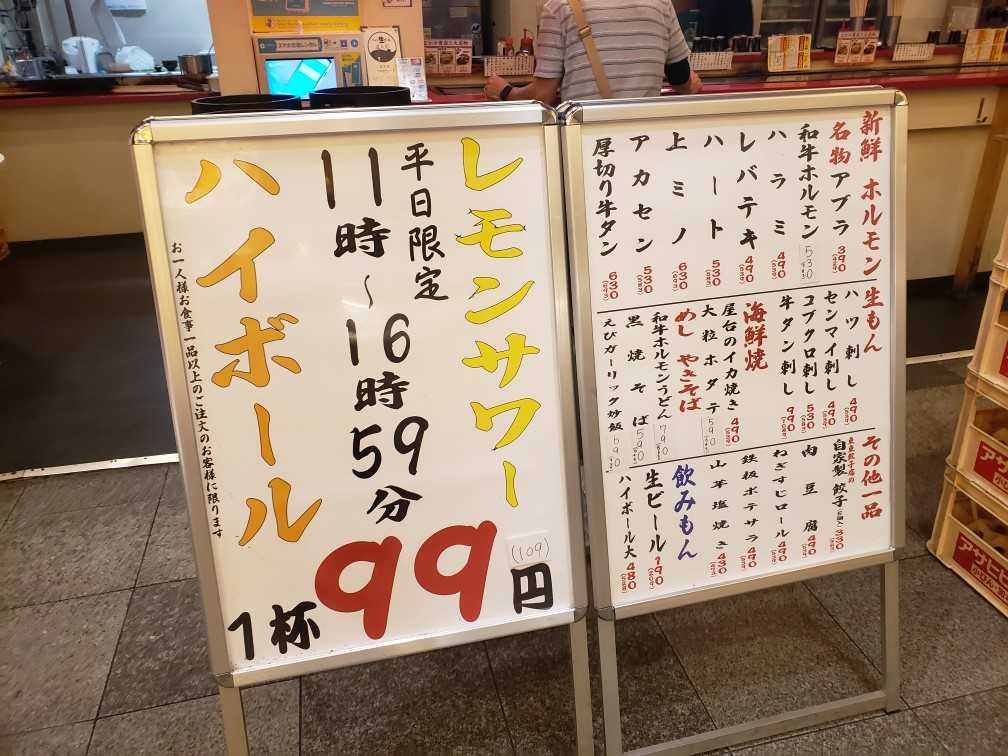 レモンサワー
平日限定
11時～16時59分
ハイボール
お一人様お食事一品以上のご注文のお客様に限ります
1杯99円
(109)
新鮮 ホルモン
名物アブラ 390
和牛ホルモン 530
ハラミ 490
レバテキ 490
ハート 530
上ミノ 630
アカセン 530
厚切り牛タン 630
生もん
ハツ刺し 490
センマイ刺し 490
コブクロ刺し 530
牛タン刺し 990
海鮮焼
屋台のイカ焼き 490
大粒ホタテ 590
めし やきそば
和牛ホルモンうどん 790
黒焼そば 590
えびガーリック炒飯 690
その他一品
自家製餃子 330
肉豆腐 490
ねぎすじロール 490
鉄板ポテサラ 490
山芋塩焼き 430
飲みもん
生ビール 190
ハイボール大 480
アサヒビ